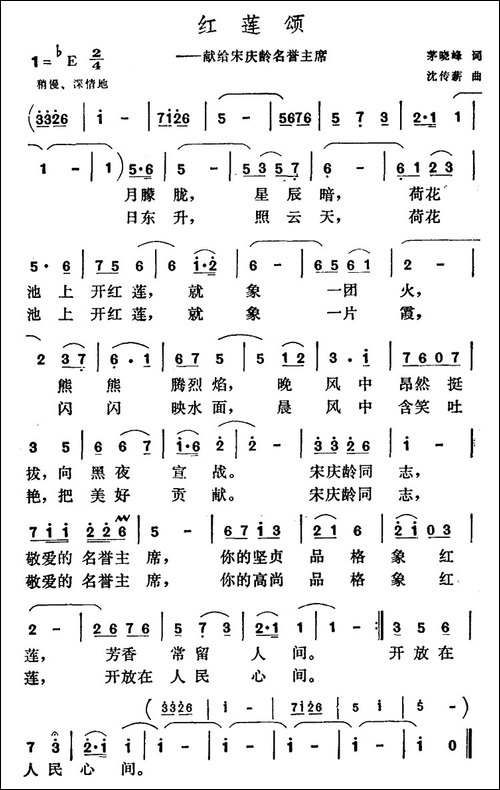 红莲颂
——献给宋庆龄名誉主席
1=♭E 2/4
茅晓峰 词
沈传薪 曲
稍慢、深情地
(3326 | i - | 7i26 | 5 - | 5676 | 5 7 3 | 2·1 | 1
1 - | 1 ) 5·6 | 5 - | 5357 | 6 - | 6123
月朦胧， 星辰暗， 荷花
日东升， 照云天， 荷花
5·6 | 7 5 6 | 6 i·2 | 6 - | 6561 | 2 -
池上开红莲，就象一团火，
池上开红莲，就象一片霞，
2 37 | 6·1 | 675 | 5 12 | 3·i | 7607
熊熊腾烈焰，晚风中昂然挺
闪闪映水面，晨风中含笑吐
3 5 | 6 6 7 | i·6 2 | 2 - | 3326 | i -
拔，向黑夜宣战。 宋庆龄同志，
艳，把美好贡献。 宋庆龄同志，
7ii 226 | 5 - | 67i3 | 2i6 | 5 6 | 2i03
敬爱的名誉主席， 你的坚贞品格象红
敬爱的名誉主席， 你的高尚品格象红
2 - | 2676 | 5 7 3 | 2·1 1 | 1 - :| 3 5 6
莲， 芳香常留人间。 开放在
莲， 开放在人民心间。
(3326 | i - | 7i26 | 5 i | 5 -)
7 3 | 2·i i | i - | i - | i - | i 0
人民心间。